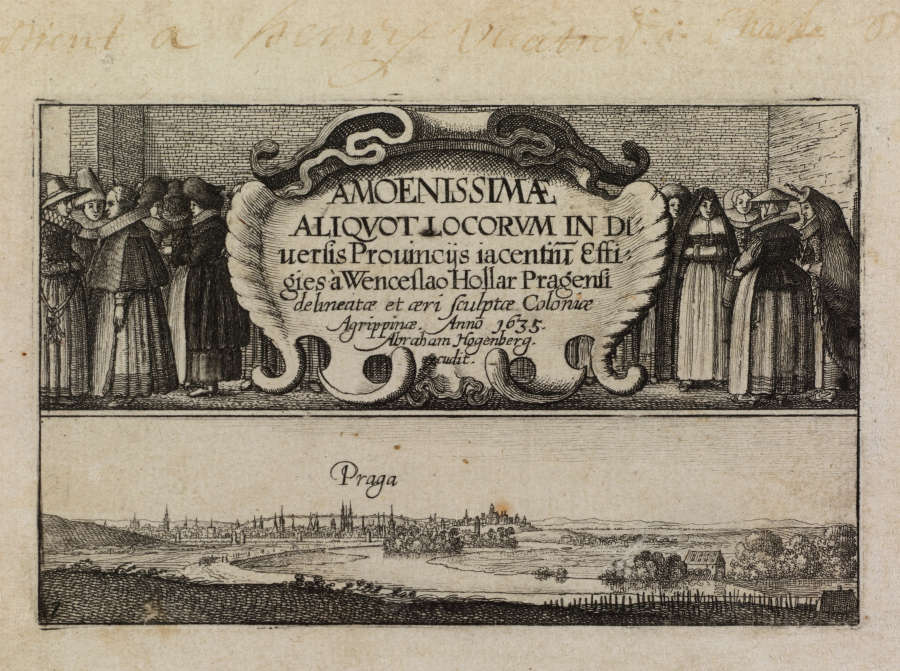 a
AMOENISSIMÆ
ALIQVOT LOCORVM IN DI-
uersis Prouincijs iacentiũ Effi-
gies à Wenceslao Hollar Pragensi
delineatæ et æri sculptæ Coloniæ
Agrippinæ. Anno 1635.
Abraham Hogenberg.
excudit.
Praga
1